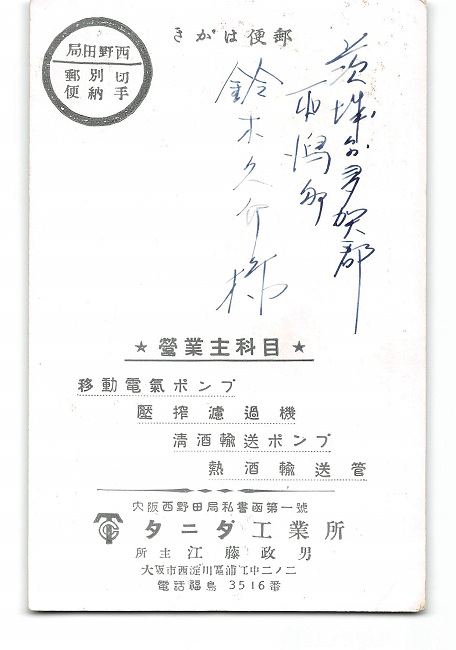 郵便はがき
西野田局
切手別納郵便
茨城縣多賀郡
鈴木久介様
★營業主科目★
移動電氣ポンプ
壓搾濾過機
清酒輸送ポンプ
熱酒輸送管
大阪西野田局私書凾第一號
タニダ工業所
所主 江藤政男
大阪市西淀川區浦江中二ノ二
電話福島 3516番